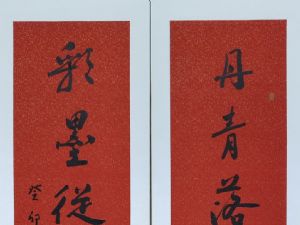 丹青落
彩墨從
癸卯